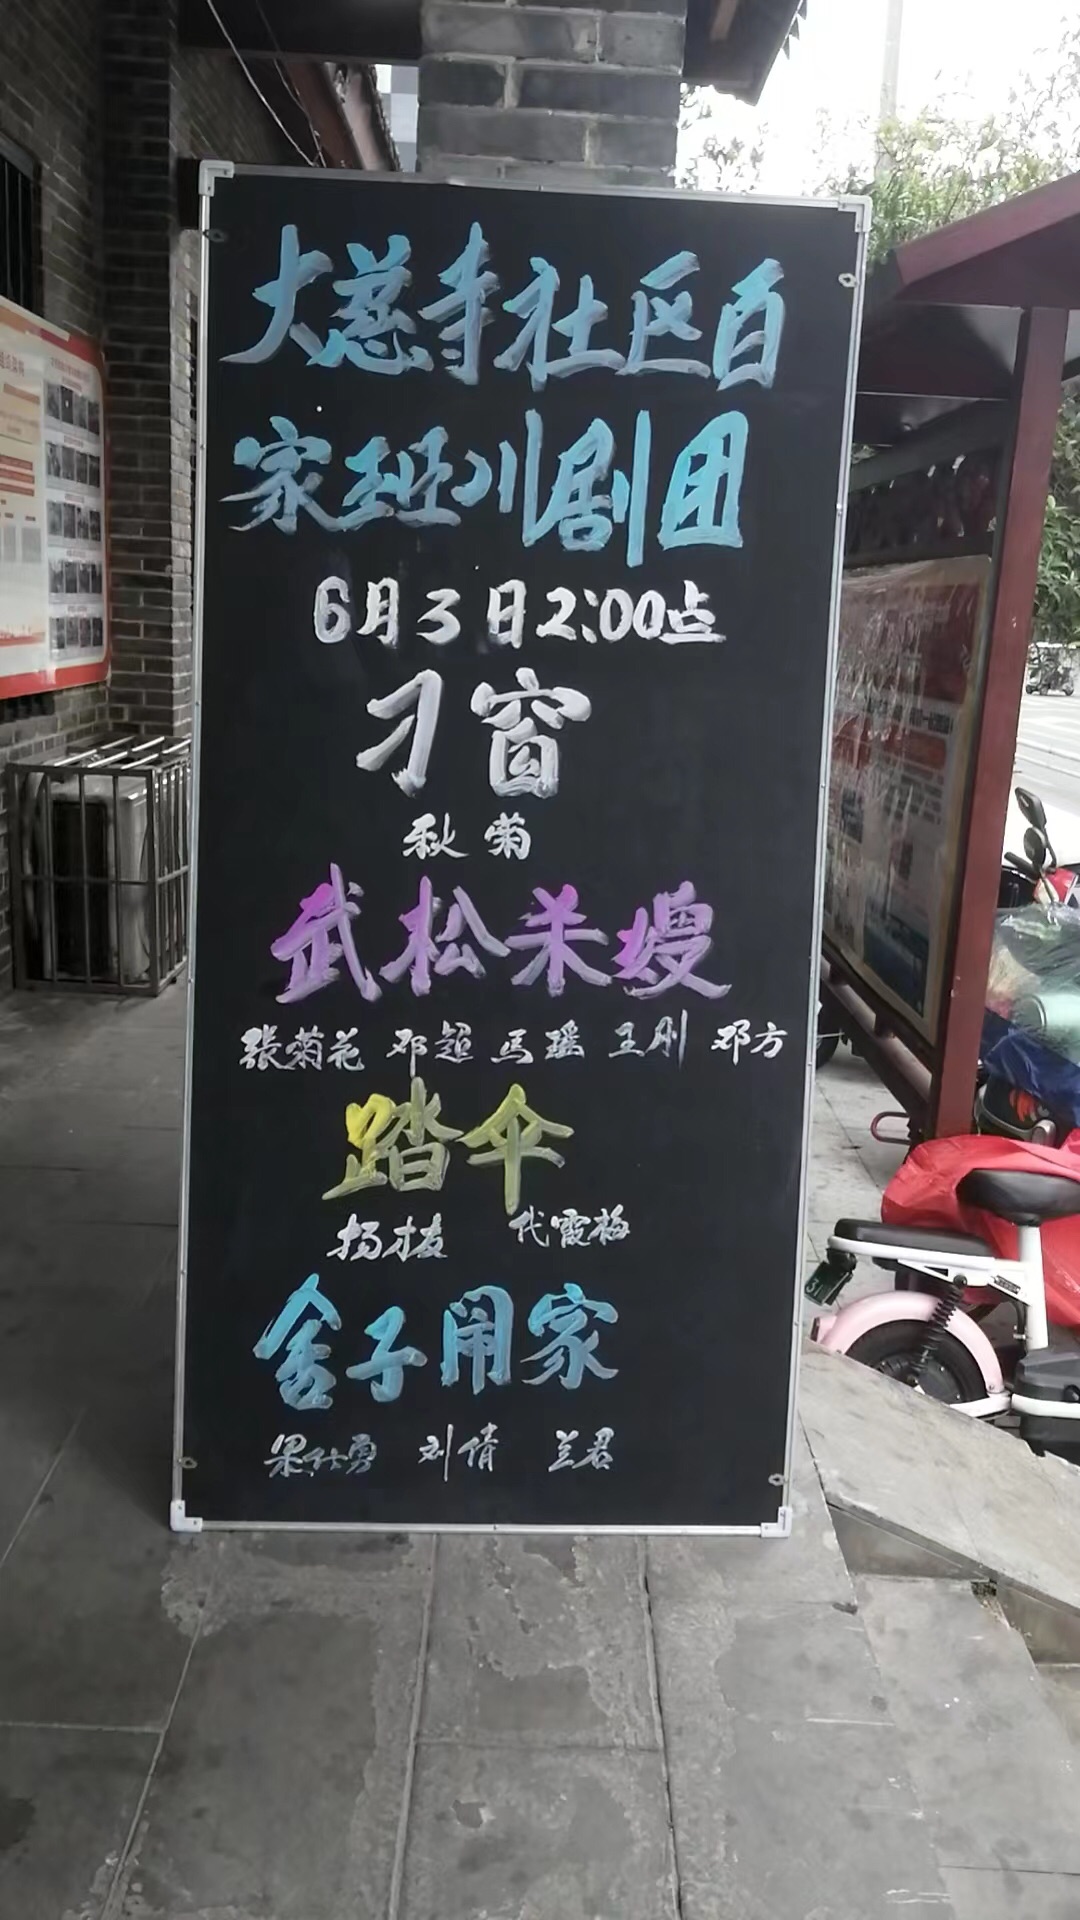 大慈寺社区百
家班川剧团
6月3日2:00点
刁窗
秋菊
武松杀嫂
张菊花 邓超 马瑶 王刚 邓方
踏伞
扬友 代霞梅
金子闹家
梁仕勇 刘倩 兰君